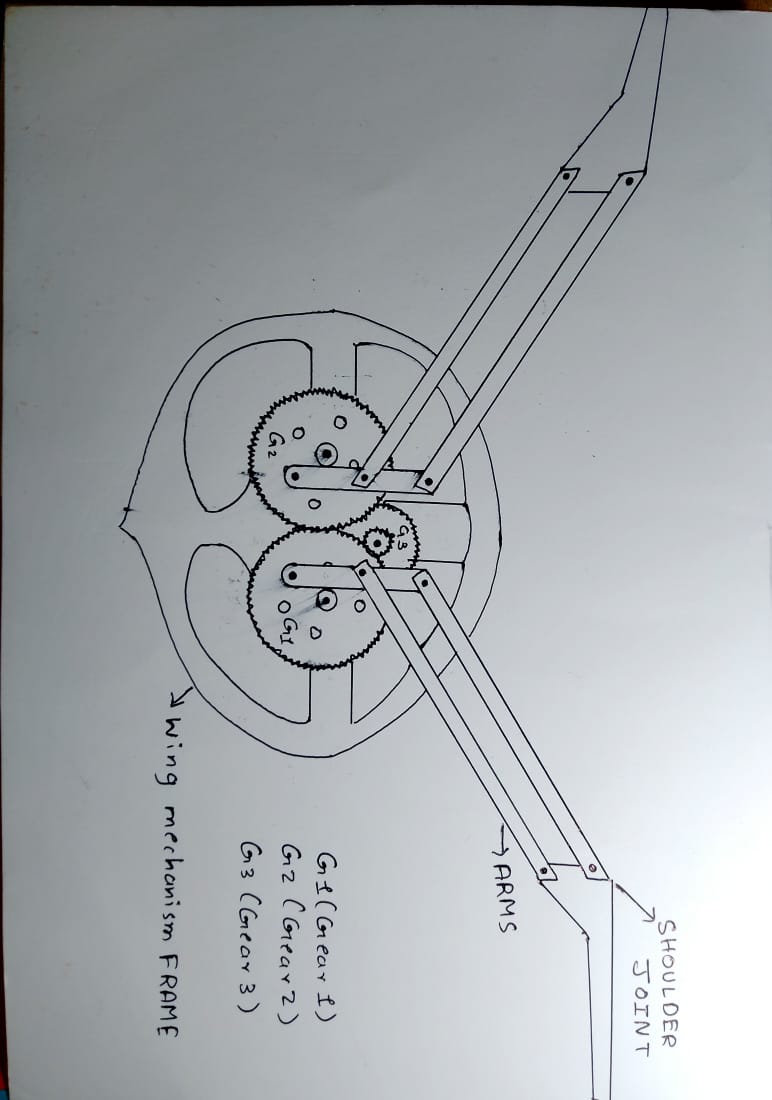 SHOULDER
JOINT
→ARMS
G3
G2
G1
G1 (Gear 1)
G2 (Gear 2)
G3 (Gear 3)
Wing mechanism FRAME